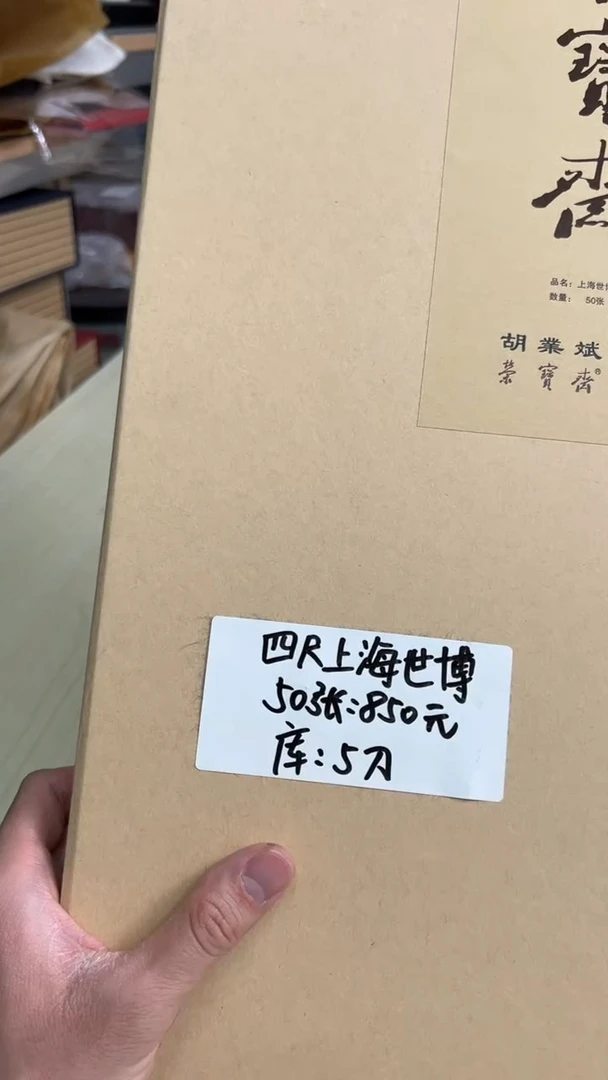 寶
齋
品名：上海世博
数量： 50张
胡業斌
荣寶齋®
四尺上海世博
50张:850元
库:5刀